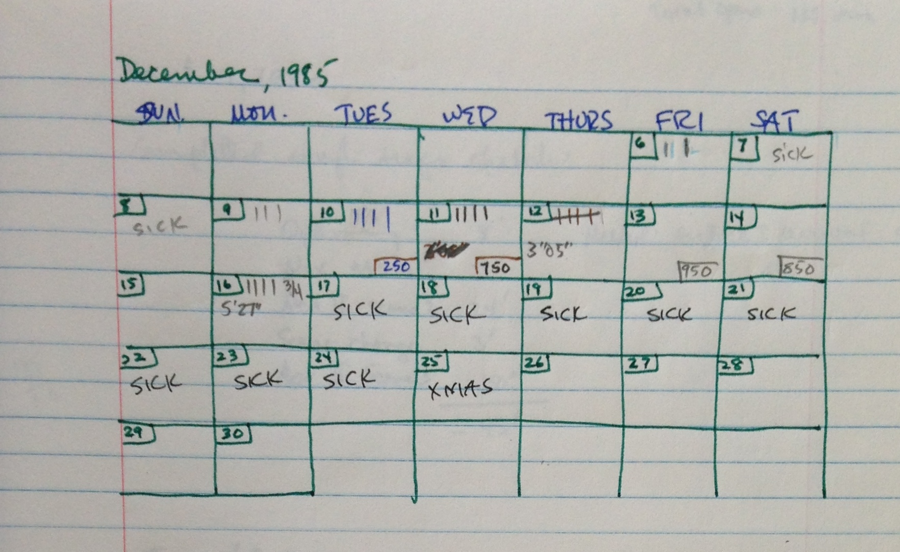 December, 1985
SUN. MON. TUES WED THURS FRI SAT
6 ||| 7 SICK
8 SICK 9 ||| 10 |||| 250 11 |||| 750 12 3"05" 13 950 14 850
15 16 |||| 3/4 5'27" 17 SICK 18 SICK 19 SICK 20 SICK 21 SICK
22 SICK 23 SICK 24 SICK 25 XMAS 26 27 28
29 30